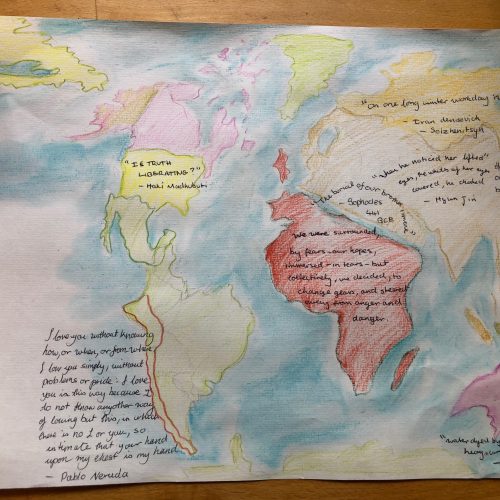 "IS TRUTH
LIBERATING?"
- Haki Madhubuti
"On one long winter workday
- Ivan denisovich
- Solzhenitsyn
"When he noticed her lifted
eyes, the whites of her eyes
covered, he choked
- Hyun Jin
"The burial of our brother
- Sophocles
441
BCE
We were surrounded
by fears - our hopes,
immersed - in tears - but
collectively, we decided, to
change gears, and steered
away from anger and
danger.
I love you without knowing
how, or when, or from where
I lov you simply, without
problems or pride: I love
you in this way because I
do not know any other way
of loving but this, in which
there is no I or you, so
intimate that your hand
upon my chest is my hand
- Pablo Neruda
"water dyed by